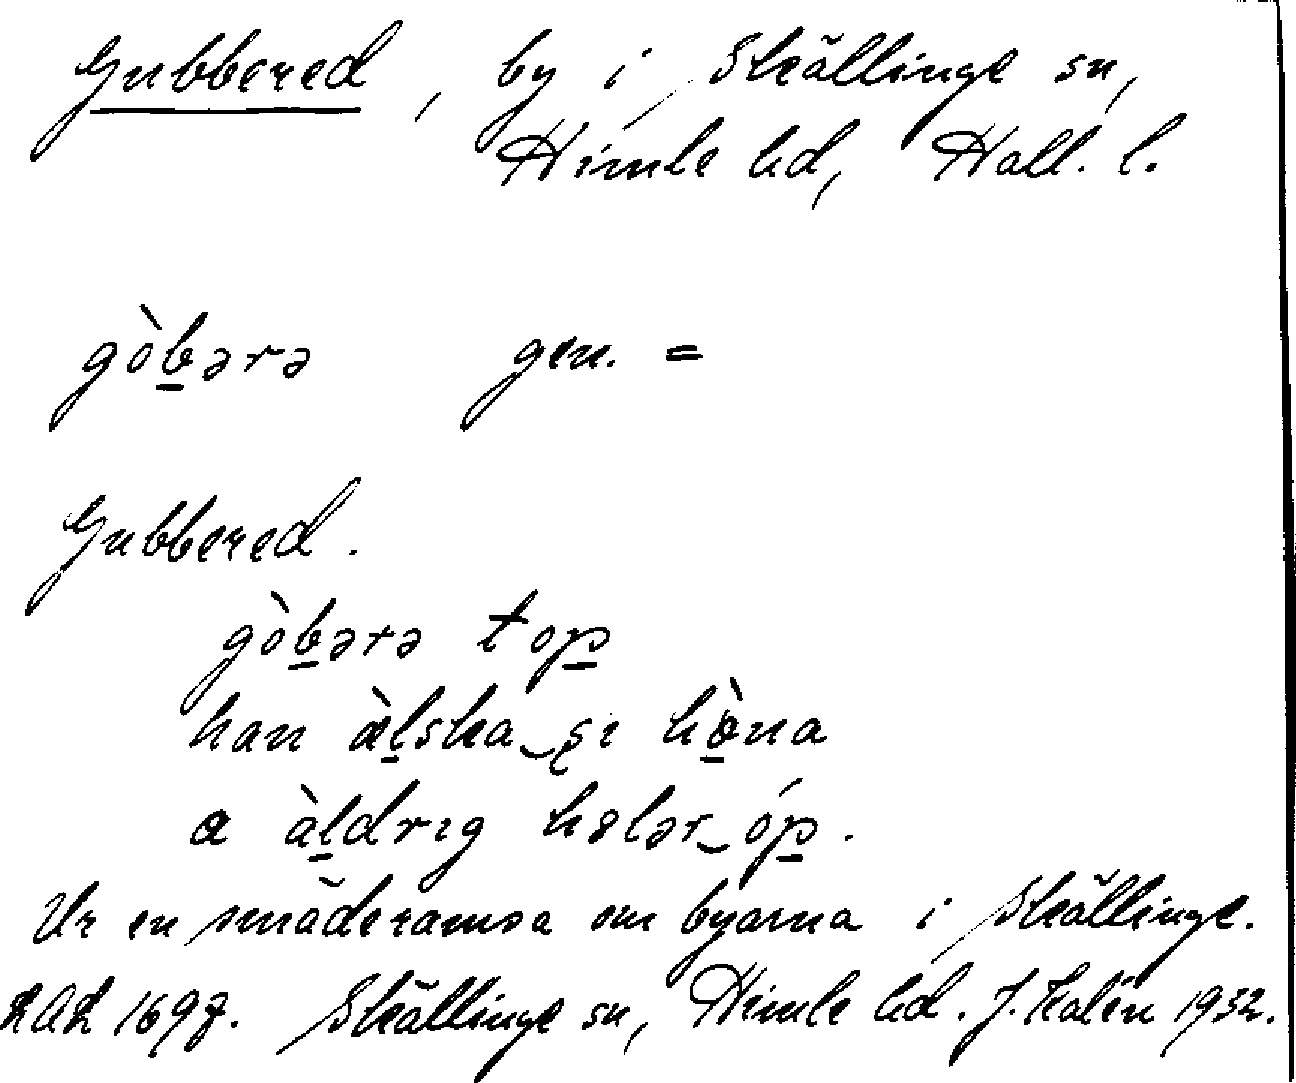 Gubbered, by i Skällinge sn,
Himle hd, Hall. l.
gòb̲ərə gen. =
Gubbered.
gòb̲ərə top̲
han æ̀l̲ska‿şı hò̲na
a àl̲drıg hɞlər‿óp̲.
Ur en smäderamsa om byarna i Skällinge.
Skällinge sn, Himle hd. J. Kalén 1932.